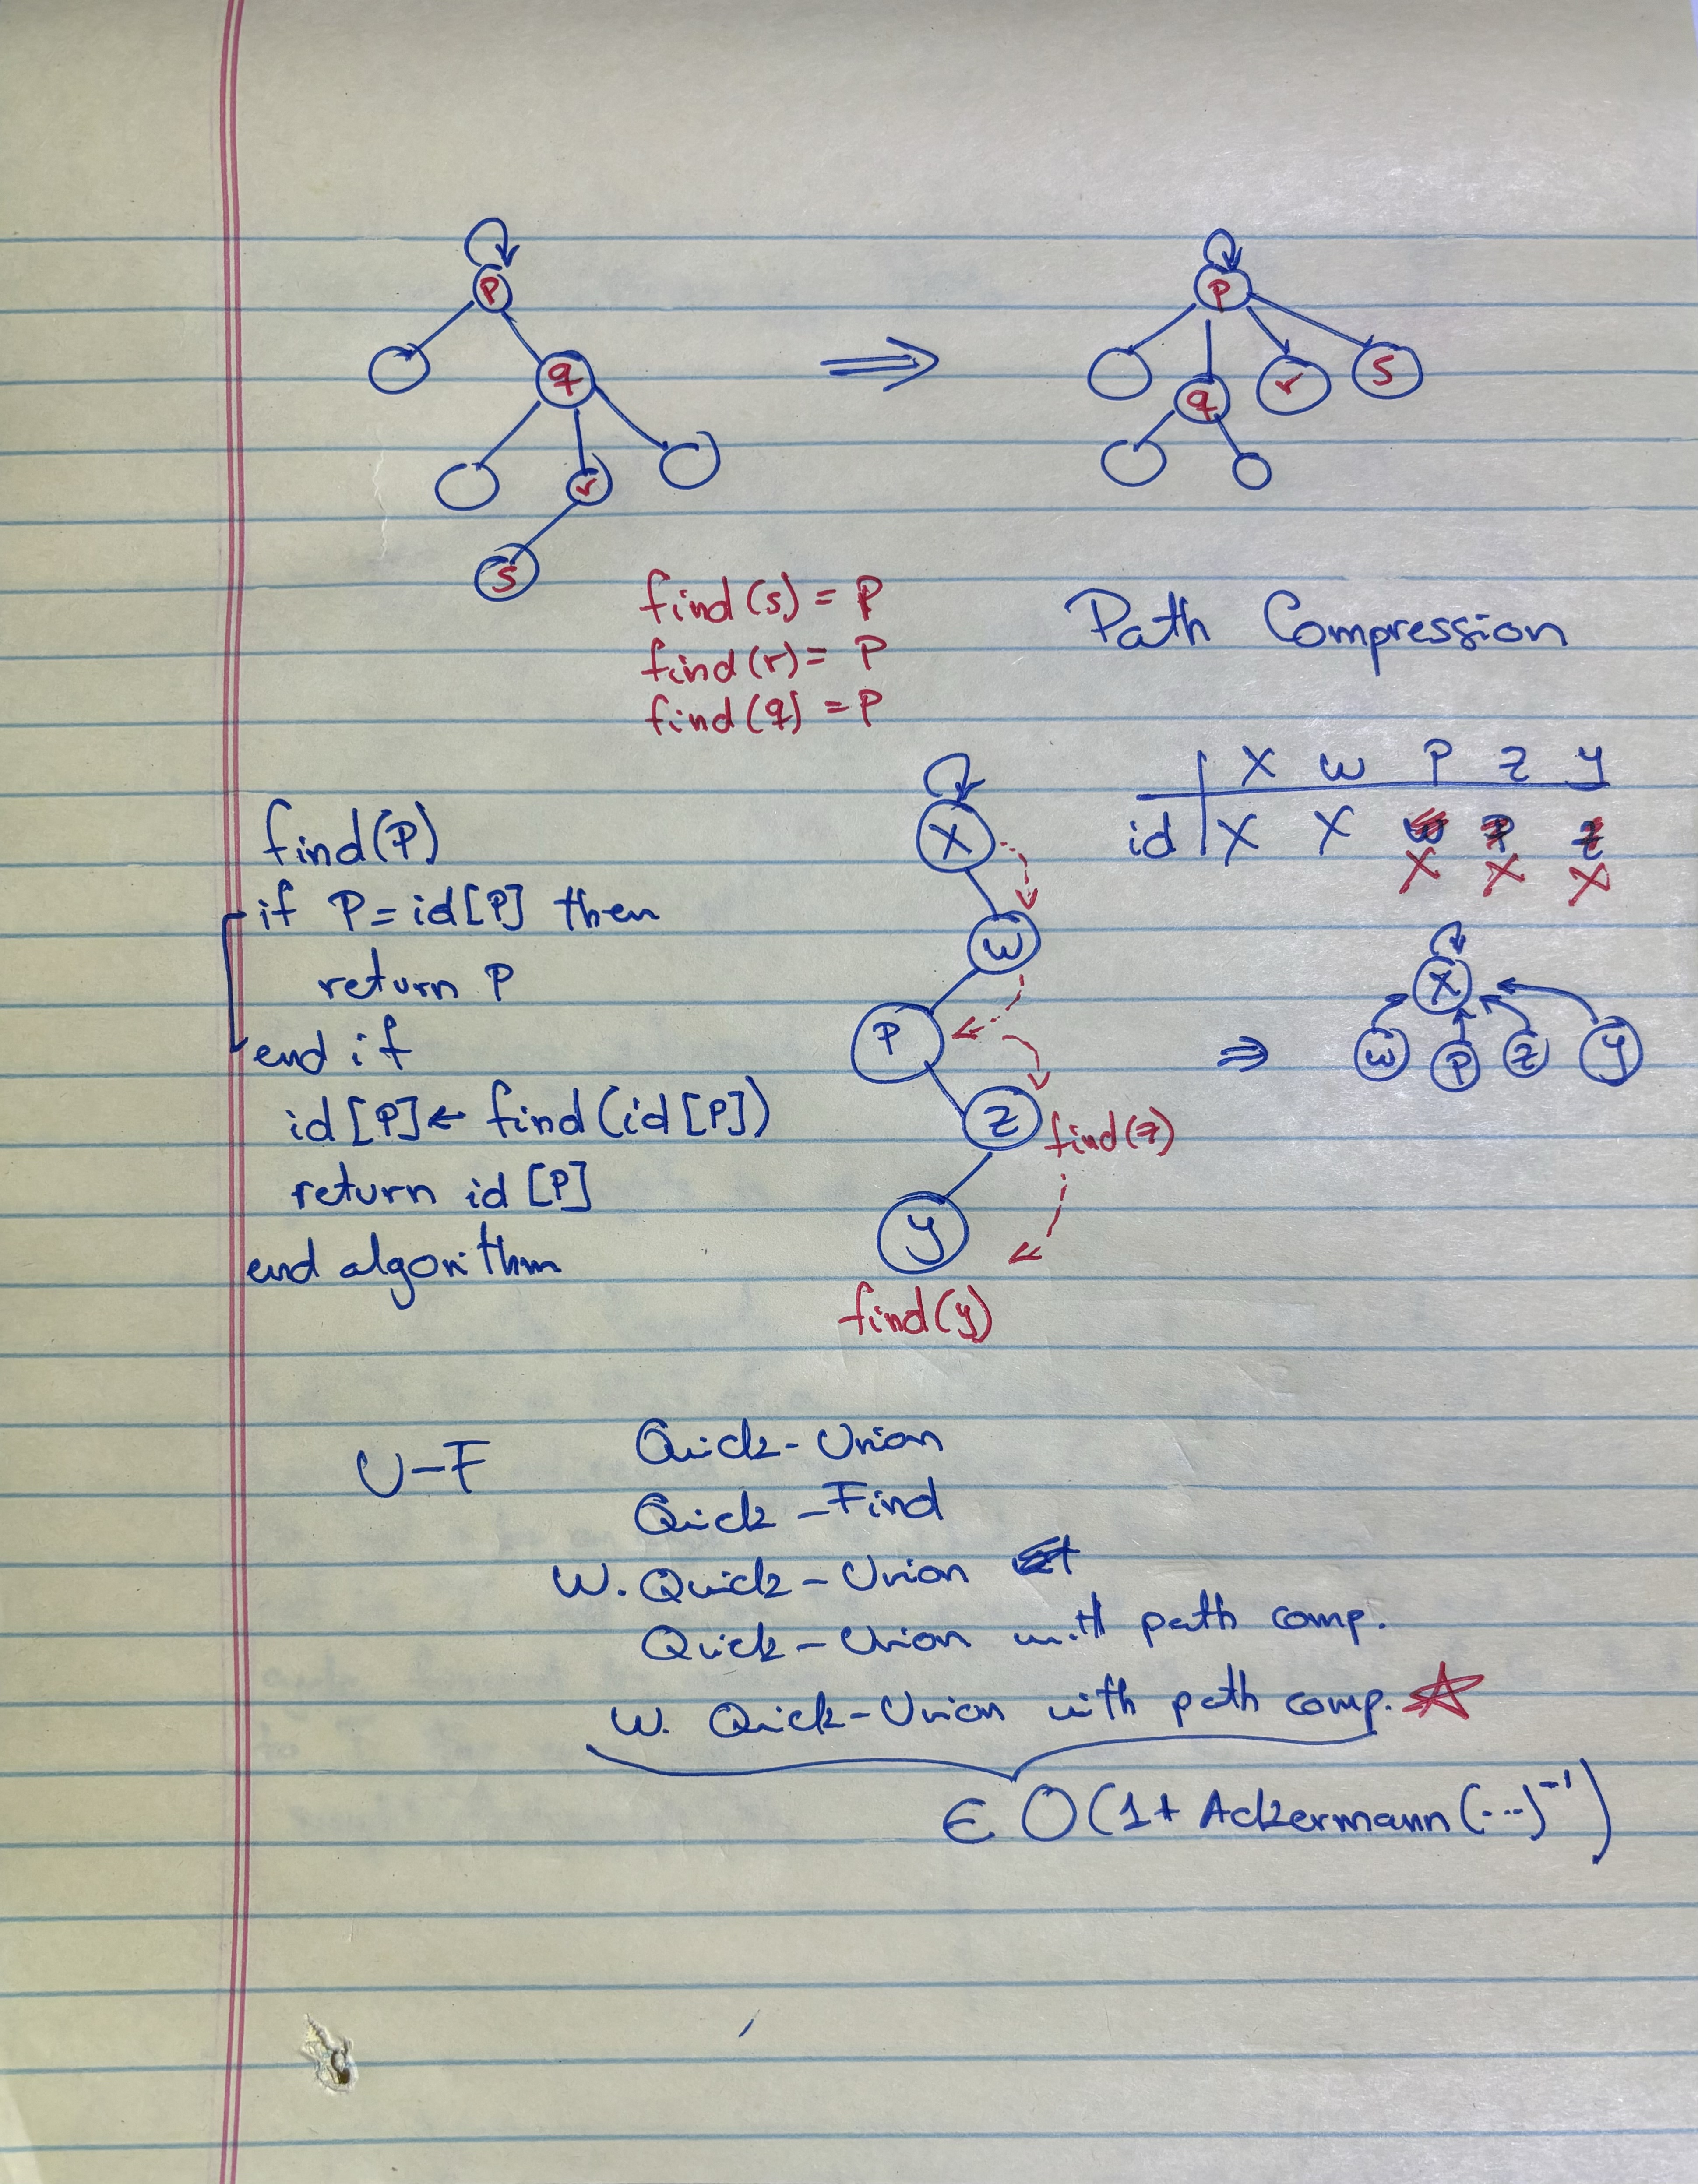 P
q
r
s
P
q
r
s
find(s) = P
find(r) = P
find(q) = P
Path Compression
find(P)
if P = id[P] then
return P
end if
id[P] ← find(id[P])
return id[P]
end algorithm
X
W
P
Z
y
find(z)
find(y)
X W P Z y
id X X W P Z
X X X
⇒
X
W P Z y
U-F
Quick-Union
Quick-Find
W. Quick-Union
Quick-Union with path comp.
W. Quick-Union with path comp. ☆
∈ O(1 + Ackermann(...)⁻¹)